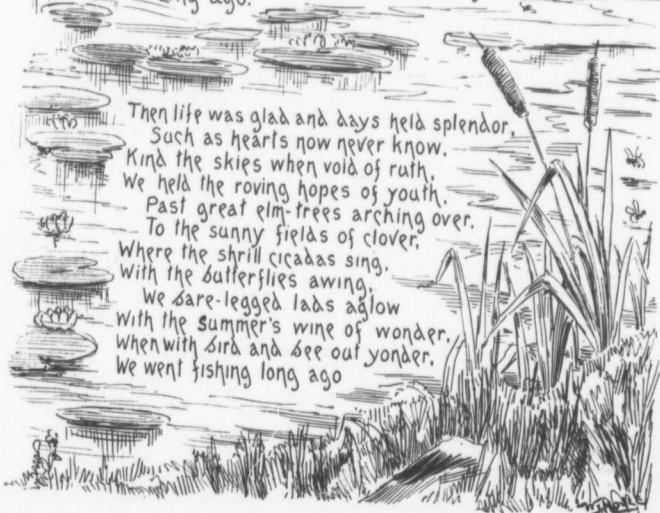 ago.
Then life was glad and days held splendor,
Such as hearts now never know.
Kind the skies when void of ruth,
We held the roving hopes of youth,
Past great elm-trees arching over,
To the sunny fields of clover,
Where the shrill cicadas sing,
With the butterflies awing,
We bare-legged lads aglow
With the summer's wine of wonder,
When with bird and bee out yonder,
We went fishing long ago